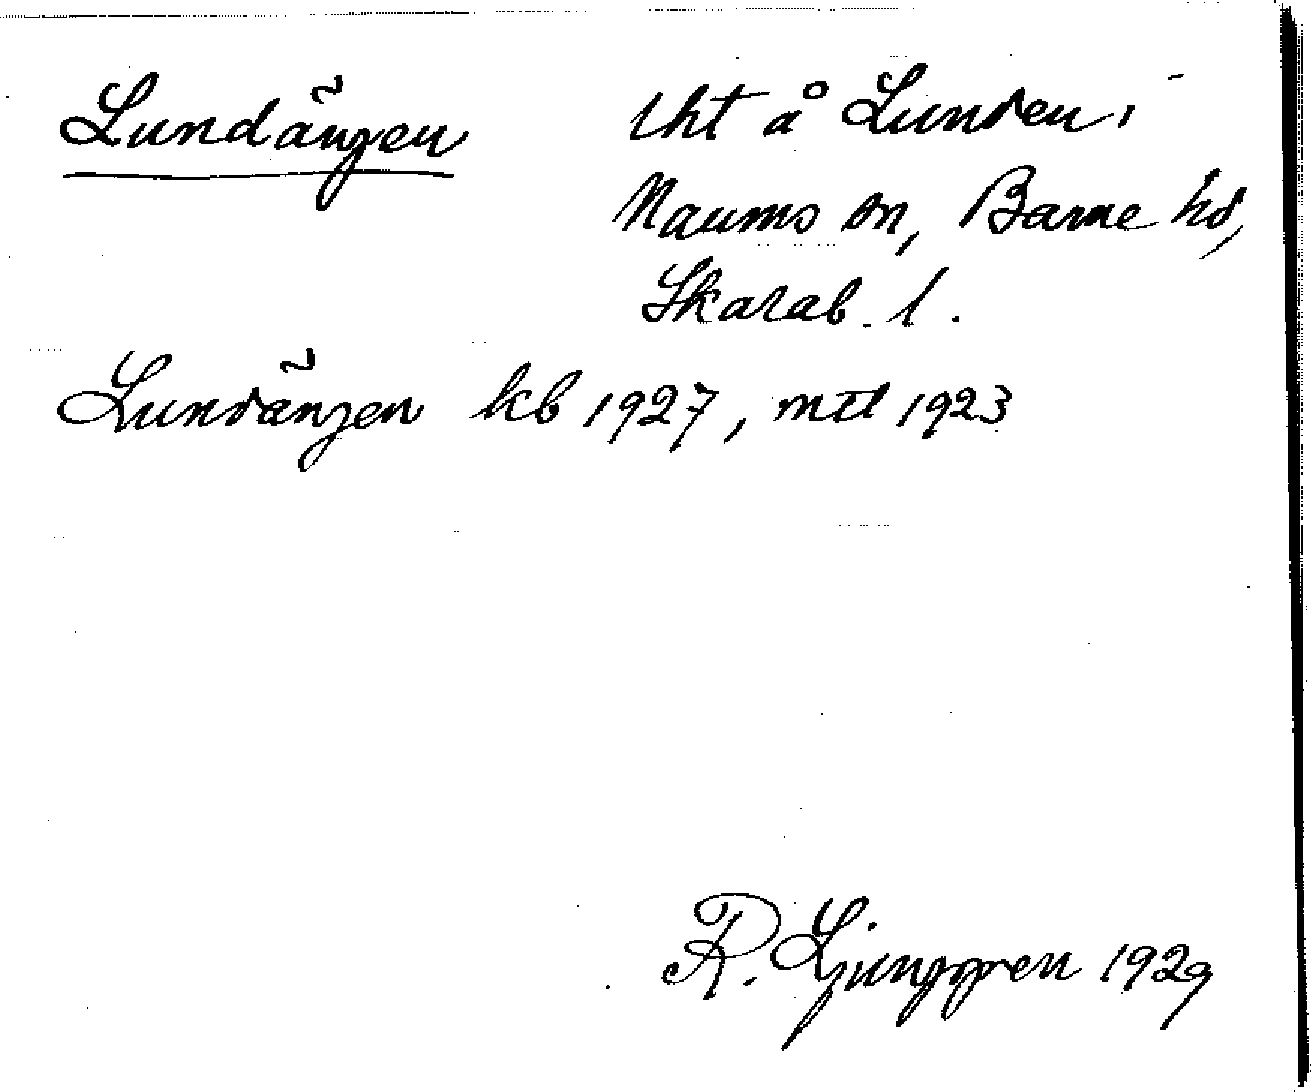 Lundängen lht å Lunden i
Naums sn, Barne hd,
Skarab. l.
Lundängen kb 1927, mtl 1923
R. Ljunggren 1929